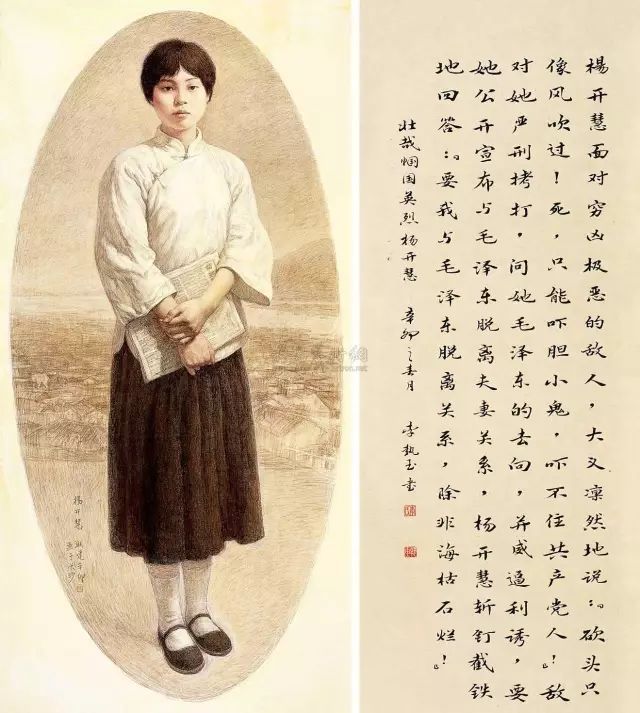 楊开慧面对穷凶极恶的敌人，大义凛然地说：“砍头只
像风吹过！死，只能吓胆小鬼，吓不住共产党人！”敌
对她严刑拷打，问她毛泽东的去向，并威逼利诱，要
她公开宣布与毛泽东脱离夫妻关系，杨开慧斩钉截铁
地回答：“要我与毛泽东脱离关系，除非海枯石烂！”
壮哉悯国英烈杨开慧 辛卯之春月 李 玉书
楊开慧